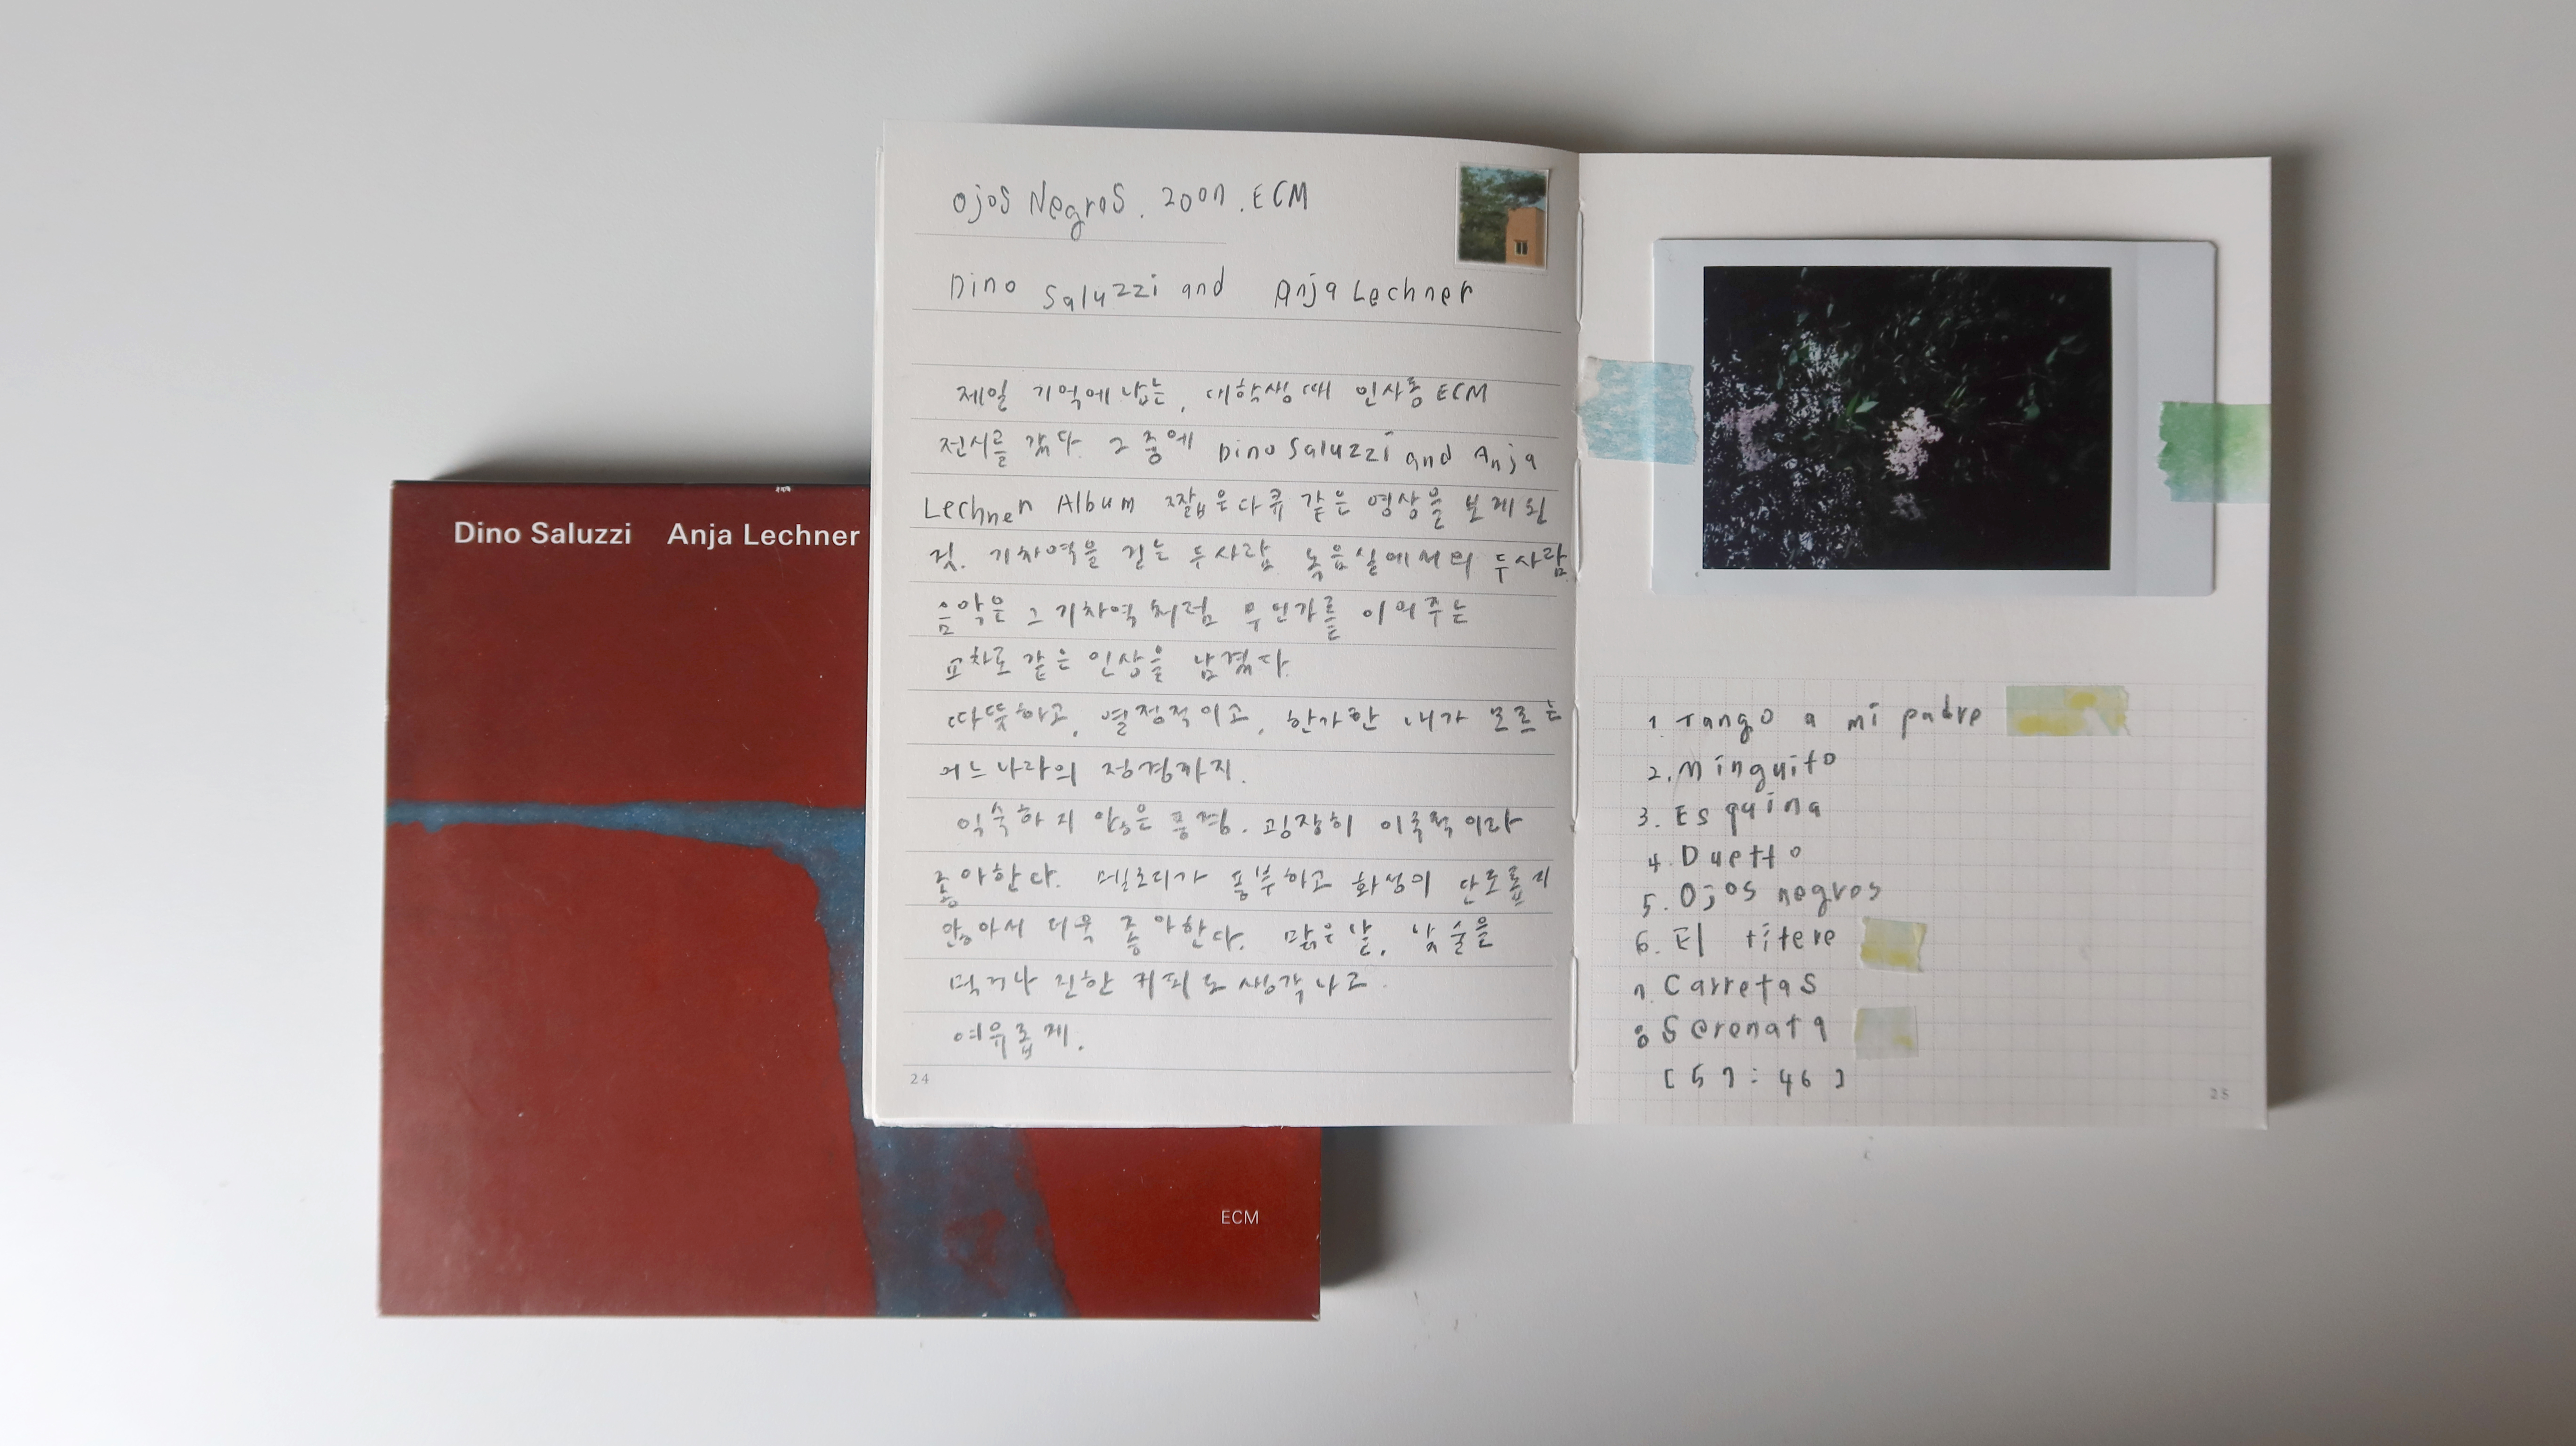 Dino Saluzzi Anja Lechner
ECM
Ojos Negros. 2007. ECM
Dino Saluzzi and Anja Lechner
제일 기억에 남는, 대학생때 인사동 ECM
전시를 갔다. 그 중에 Dino Saluzzi and Anja
Lechner Album 짧은 다큐 같은 영상을 보게 된
것. 기차역을 걷는 두사람 녹음실에서의 두사람
음악은 그 기차역처럼 무언가를 이어주는
교차로 같은 인상을 남겼다.
따뜻하고, 열정적이고, 한가한 내가 모르는
어느나라의 정경까지.
익숙하지 않은 풍경. 굉장히 이국적이라
좋아한다. 멜로디가 풍부하고 화성이 단조롭지
않아서 더욱 좋아한다. 맑은날, 낮술을
먹거나 진한 커피도 생각나고.
여유롭게.
24
1. Tango a mi padre
2. Minguito
3. Esquina
4. Duetto
5. Ojos negros
6. El títere
7. Carretas
8 Serenata
[57:46]
25